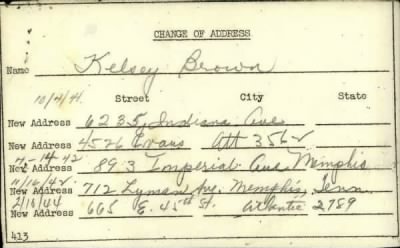 CHANGE OF ADDRESS
Name Kelsey Brown
10/4/41 Street City State
New Address 6235 Indiana Ave
New Address 4526 Evans Att 3562
7-14-42
New Address 893 Imperial Ave. Memphis
11/16/42
New Address 712 Lyman Ave. Memphis, Tenn.
2/10/44
New Address 665 E. 45th St. Atlantic 2789
413